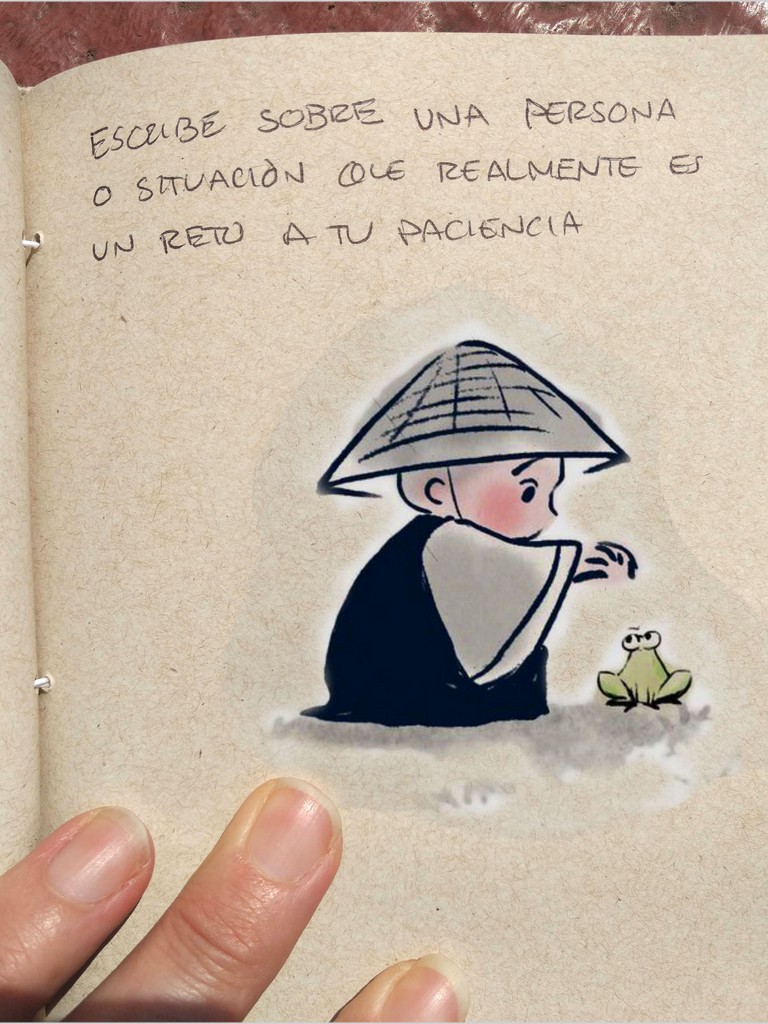 ESCRIBE SOBRE UNA PERSONA
O SITUACIÓN QUE REALMENTE ES
UN RETO A TU PACIENCIA